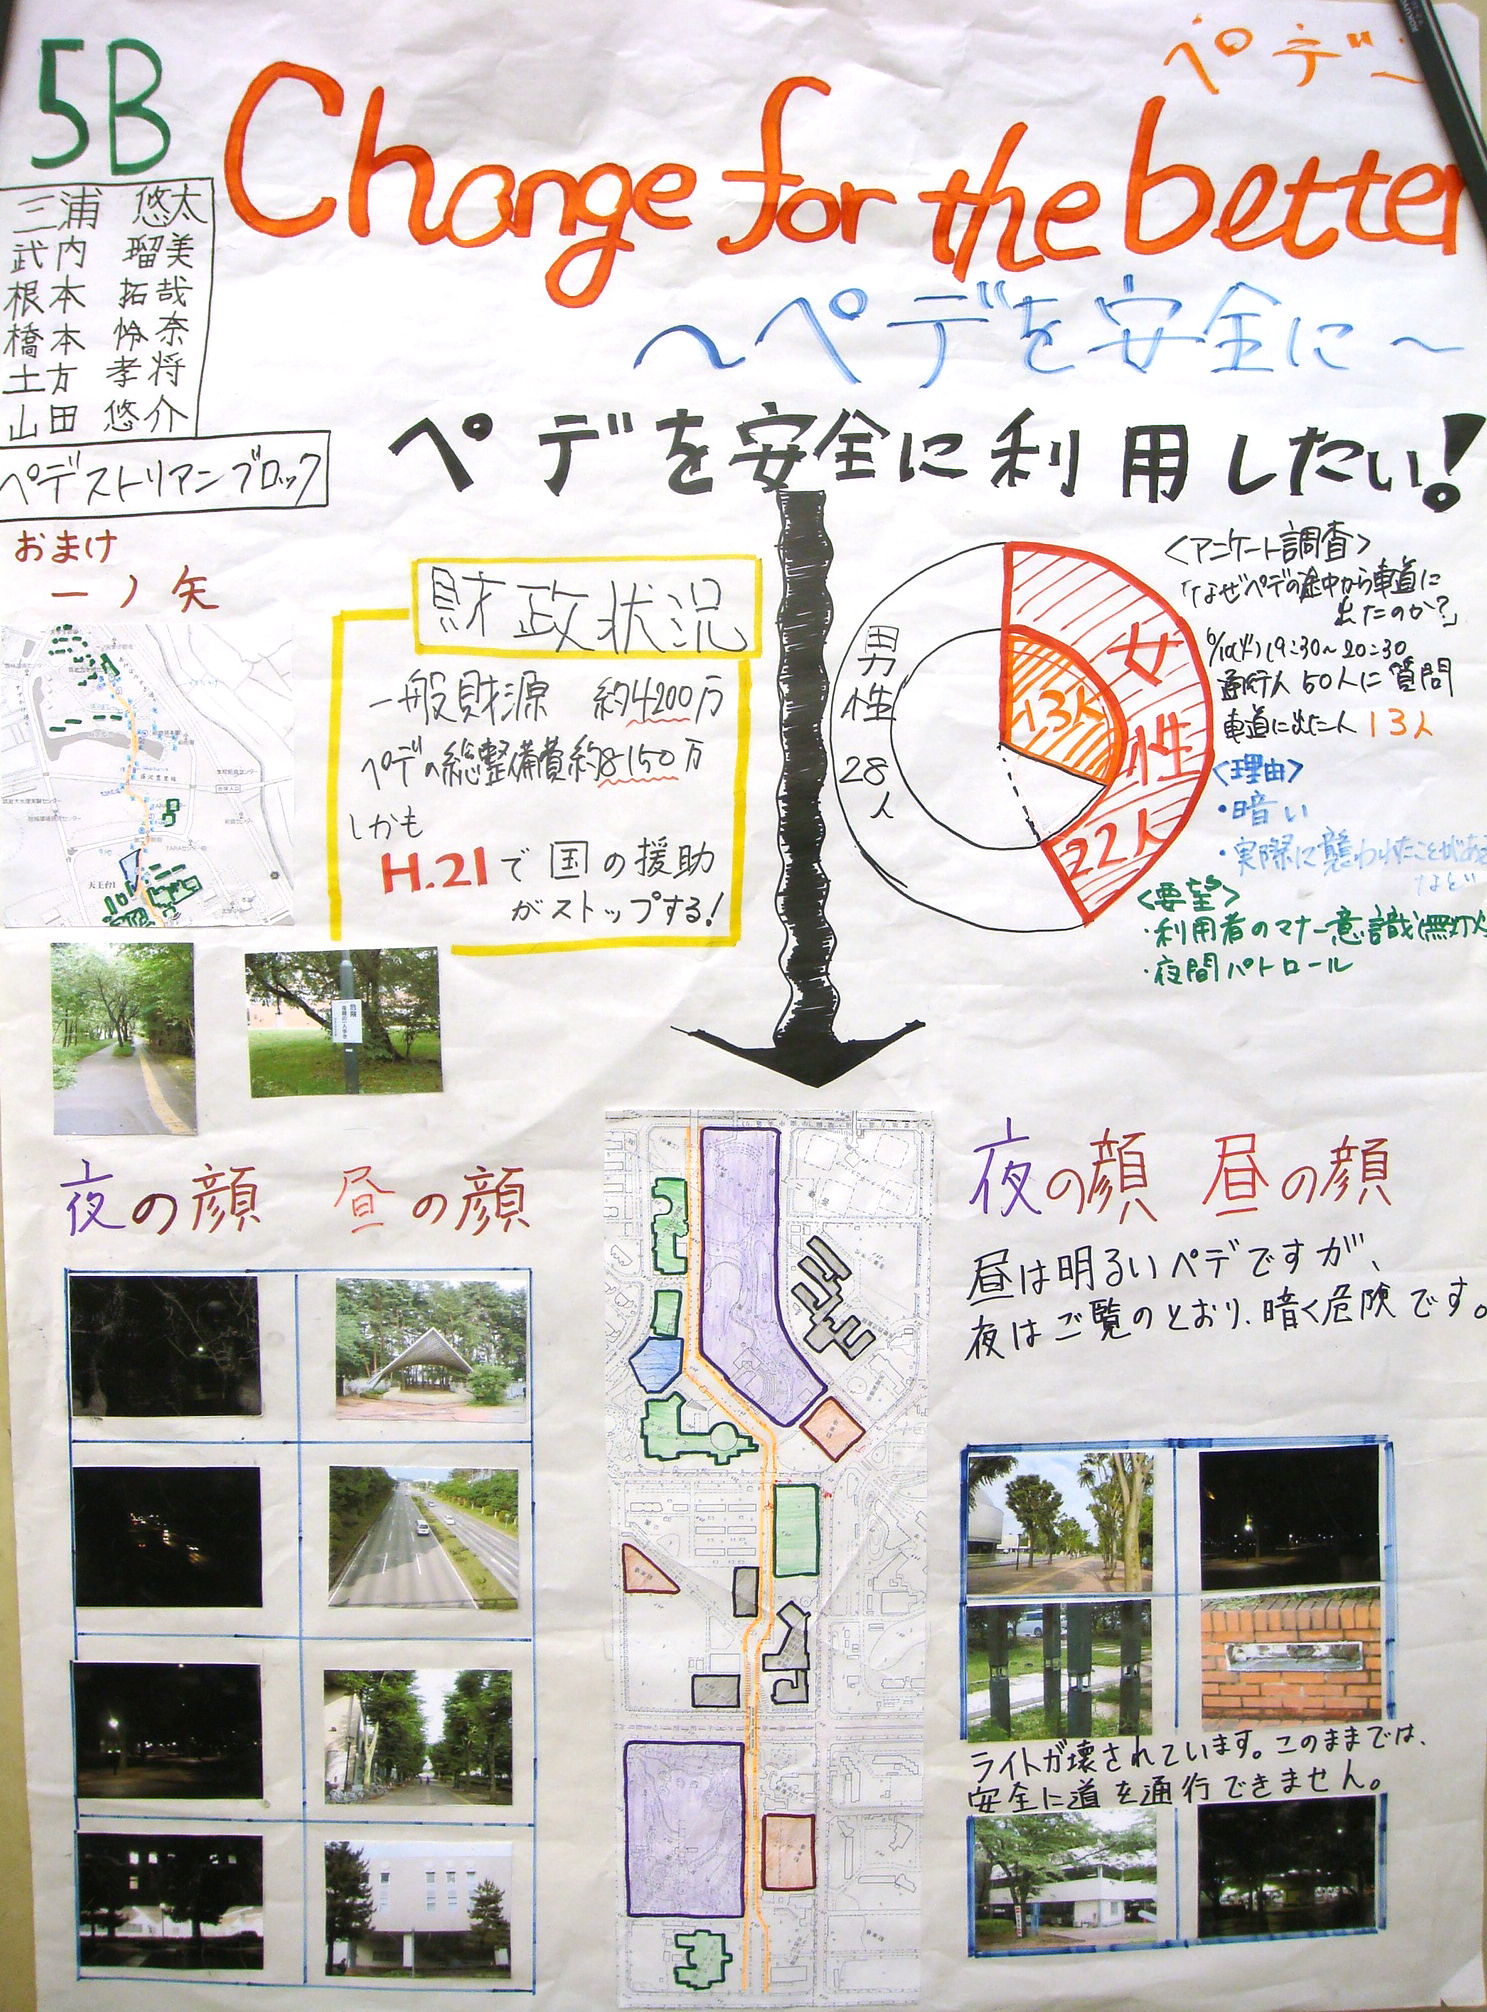 5B
ペデ〜
Change for the better
〜ペデを安全に〜
三浦 悠太
武内 瑠美
根本 拓哉
橋本 怜奈
土方 孝将
山田 悠介
ペデストリアンブロック
ペデを安全に利用したい!
おまけ
一ノ矢
天王台1
財政状況
一般財源 約4200万
ペデの総整備費約8150万
しかも
H.21で国の援助
がストップする!
男性
28人
女性
22人
13人
<アンケート調査>
「なぜペデの途中から車道に
出たのか?」
6/10(火)19:30~20:30
通行人50人に質問
車道に出た人 13人
<理由>
・暗い
・実際に襲われたことがある
など
<要望>
・利用者のマナー意識(無灯火
・夜間パトロール
夜の顔 昼の顔
夜の顔 昼の顔
昼は明るいペデですが、
夜はご覧のとおり、暗く危険です。
ライトが壊されています。このままでは、
安全に道を通行できません。